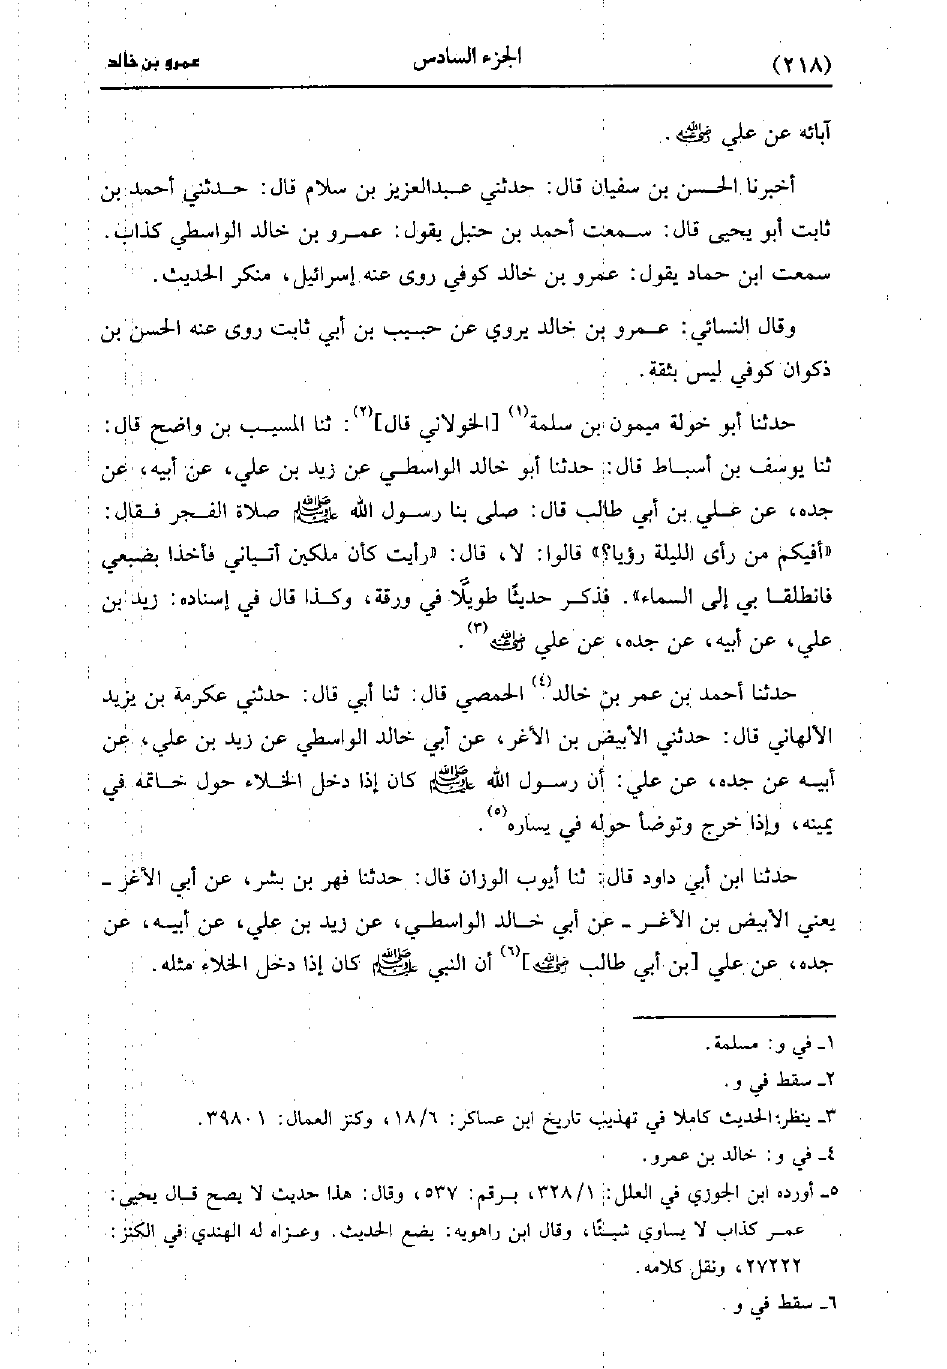 (٢١٨) الجزء السادس عمرو بن خالد
آبائه عن علي رضي الله عنه .
أخبرنا الحسن بن سفيان قال: حدثني عبدالعزيز بن سلام قال: حدثني أحمد بن
ثابت أبو يحيى قال: سمعت أحمد بن حنبل يقول: عمرو بن خالد الواسطي كذاب.
سمعت ابن حماد يقول: عمرو بن خالد كوفي روى عنه إسرائيل، منكر الحديث.
وقال النسائي: عمرو بن خالد يروي عن حبيب بن أبي ثابت روى عنه الحسن بن
ذكوان كوفي ليس بثقة.
حدثنا أبو خولة ميمون بن سلمة(١) [الخولاني قال](٢): ثنا المسيب بن واضح قال:
ثنا يوسف بن أسباط قال: حدثنا أبو خالد الواسطي عن زيد بن علي، عن أبيه، عن
جده، عن علي بن أبي طالب قال: صلى بنا رسول الله ﷺ صلاة الفجر فقال:
«أفيكم من رأى الليلة رؤيا؟» قالوا: لا، قال: «رأيت كأن ملكين أتياني فأخذا بضبعي
فانطلقا بي إلى السماء». فذكر حديثًا طويلًا في ورقة، وكذا قال في إسناده: زيد بن
علي، عن أبيه، عن جده، عن علي رضي الله عنه(٣).
حدثنا أحمد بن عمر بن خالد(٤) الحمصي قال: ثنا أبي قال: حدثني عكرمة بن يزيد
الألهاني قال: حدثني الأبيض بن الأغر، عن أبي خالد الواسطي عن زيد بن علي، عن
أبيه عن جده، عن علي: أن رسول الله ﷺ كان إذا دخل الخلاء حول خاتمه في
يمينه، وإذا خرج وتوضأ حوله في يساره(٥).
حدثنا ابن أبي داود قال: ثنا أيوب الوزان قال: حدثنا فهر بن بشر، عن أبي الأغر ـ
يعني الأبيض بن الأغر ـ عن أبي خالد الواسطي، عن زيد بن علي، عن أبيه، عن
جده، عن علي [بن أبي طالب رضي الله عنه](٦) أن النبي ﷺ كان إذا دخل الخلاء مثله.
١ـ في و: مسلمة.
٢ـ سقط في و.
٣ـ ينظر: الحديث كاملا في تهذيب تاريخ ابن عساكر: ١٨/٦، وكنز العمال: ٣٩٨٠١.
٤ـ في و: خالد بن عمرو.
٥ـ أورده ابن الجوزي في العلل: ٣٢٨/١، برقم: ٥٣٧، وقال: هذا حديث لا يصح قال يحيى:
عمر كذاب لا يساوي شيئًا، وقال ابن راهويه: يضع الحديث. وعزاه له الهندي في الكنز:
٢٧٢٢٢، ونقل كلامه.
٦ـ سقط في و .